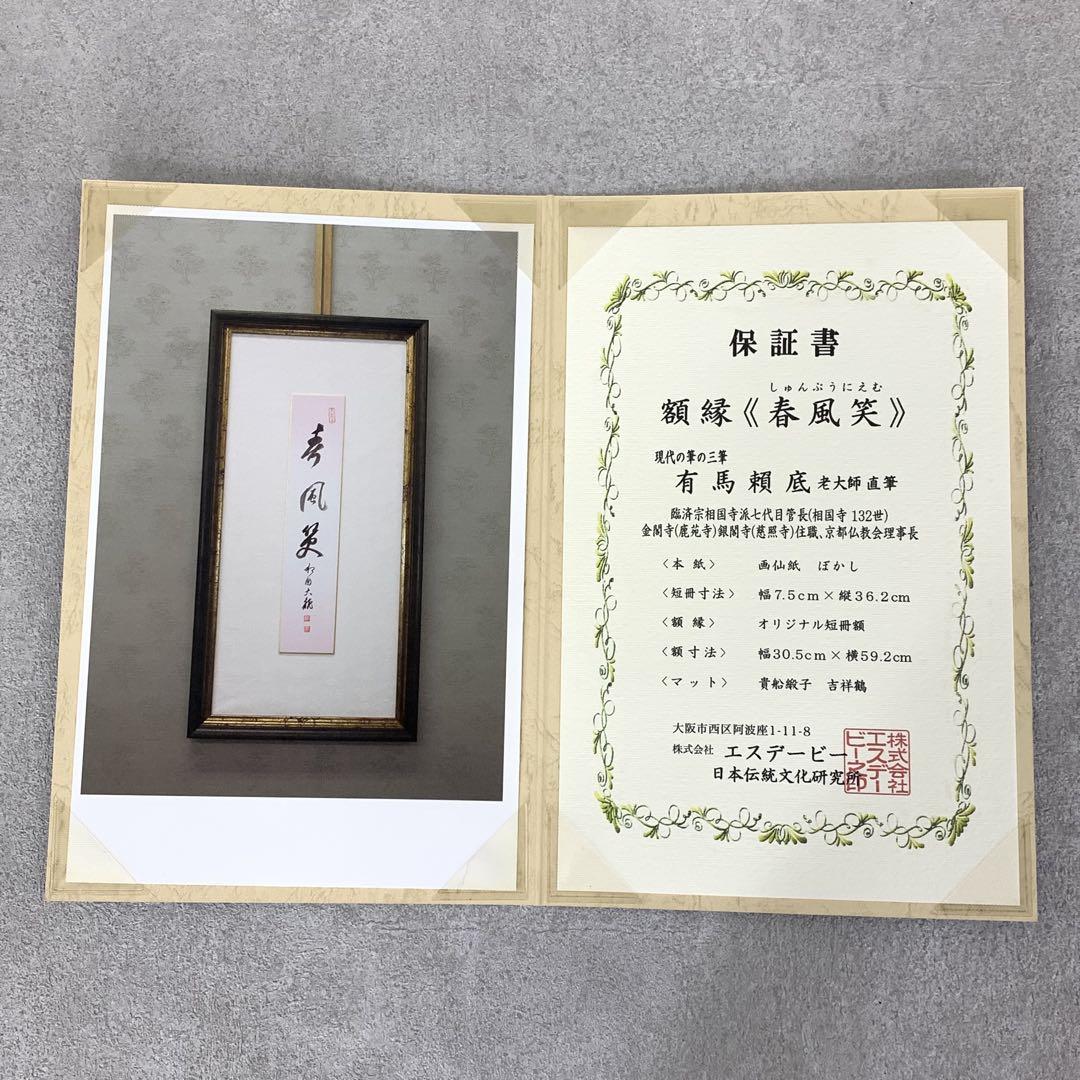 春風笑
保証書
しゅんぷうにえむ
額縁《春風笑》
現代の筆の三筆
有馬頼底 老大師 直筆
臨済宗相国寺派七代目管長(相国寺 132世)
金閣寺(鹿苑寺)銀閣寺(慈照寺)住職、京都仏教会理事長
〈本紙〉 画仙紙 ぼかし
〈短冊寸法〉 幅7.5cm×縦36.2cm
〈額縁〉 オリジナル短冊額
〈額寸法〉 幅30.5cm×横59.2cm
〈マット〉 貴船緞子 吉祥鶴
大阪市西区阿波座1-11-8
株式会社 エスデービー
日本伝統文化研究所
株式会社
エスデー
ビー之印